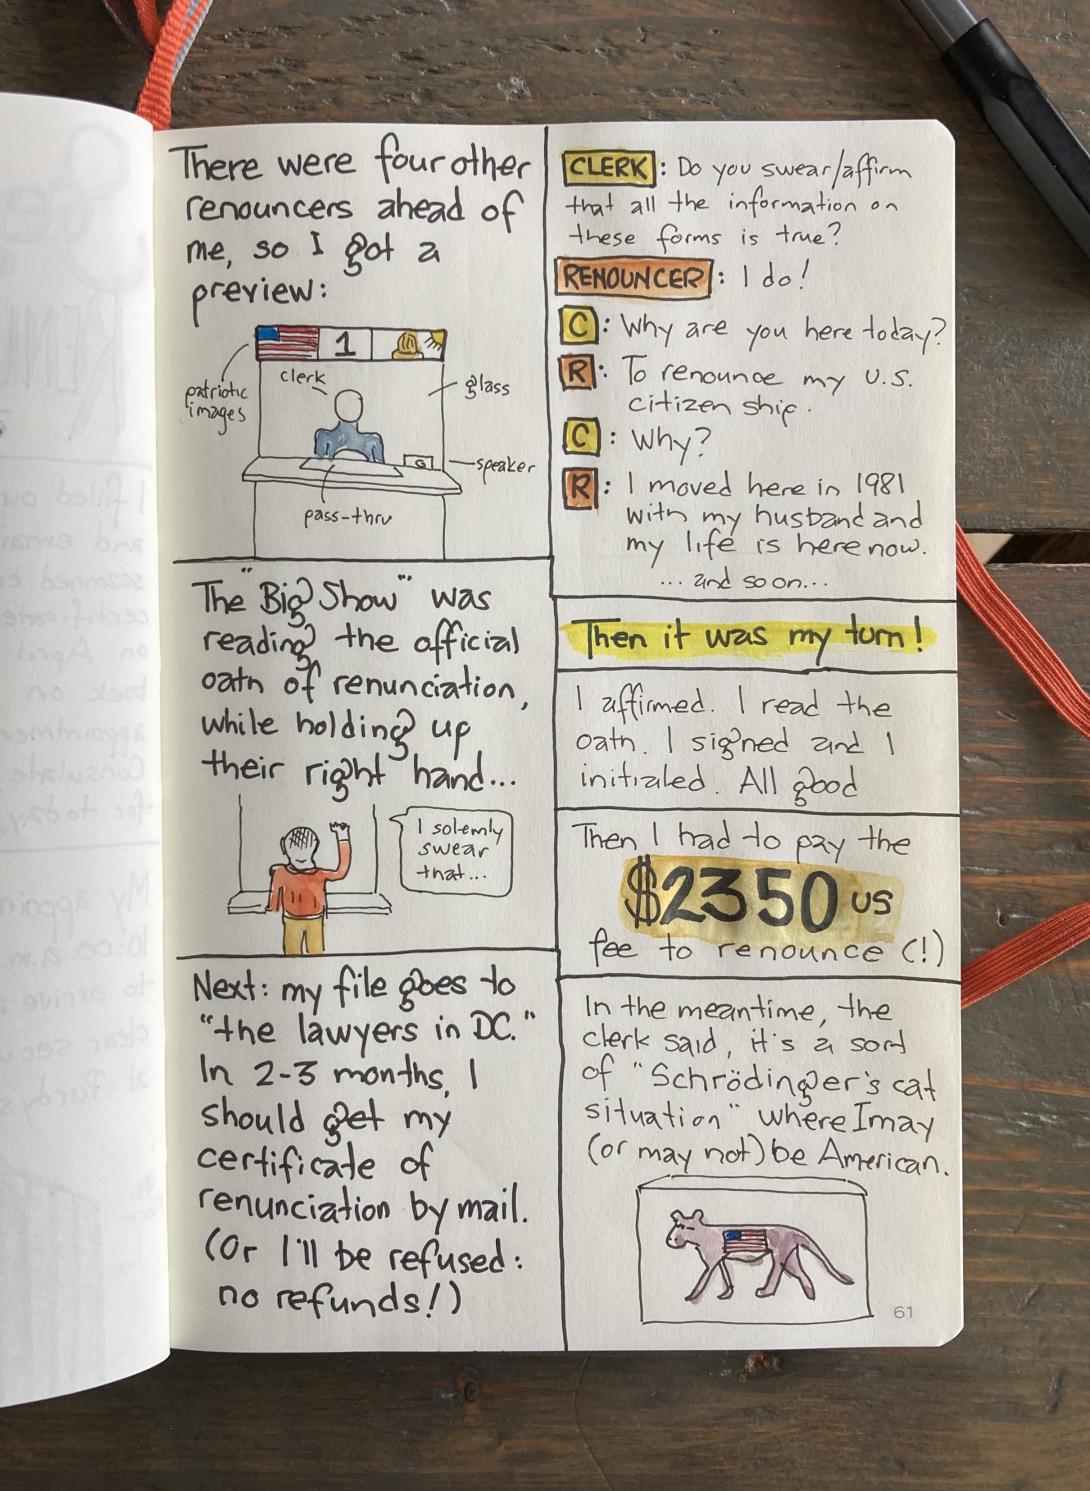 There were four other
renouncers ahead of
me, so I got a
preview:
1
patriotic
images
clerk
glass
speaker
pass-thru
The "Big Show" was
reading the official
oath of renunciation,
while holding up
their right hand...
I solemly
swear
that...
Next: my file goes to
"the lawyers in DC."
In 2-3 months, I
should get my
certificate of
renunciation by mail.
(Or I'll be refused:
no refunds!)
CLERK: Do you swear/affirm
that all the information on
these forms is true?
RENOUNCER: I do!
C: Why are you here today?
R: To renounce my U.S.
citizenship.
C: Why?
R: I moved here in 1981
with my husband and
my life is here now.
... and so on...
Then it was my turn!
I affirmed. I read the
oath. I signed and I
initialed. All good
Then I had to pay the
$2350 US
fee to renounce (!)
In the meantime, the
clerk said, it's a sort
of "Schrödinger's cat
situation" where I may
(or may not) be American.
61